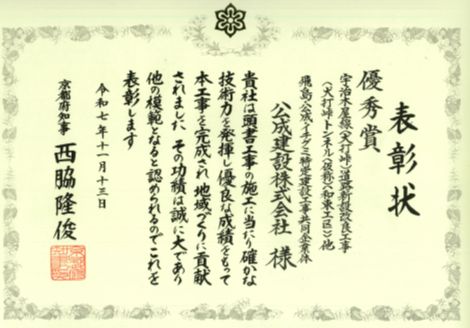 表彰状
優秀賞
宇治木屋線(犬打峠)道路新設改良工事
(犬打峠トンネル(仮称)(和束工区))他
飛島・公成・イチケン特定建設工事共同企業体
公成建設株式会社 様
貴社は頭書工事の施工に当たり確かな
技術力を発揮し優良な成績をもって
本工事を完成され地域づくりに貢献
されました その功績は誠に大であり
他の模範となると認められるのでこれを
表彰します
令和七年十一月十三日
京都府知事 西脇隆俊